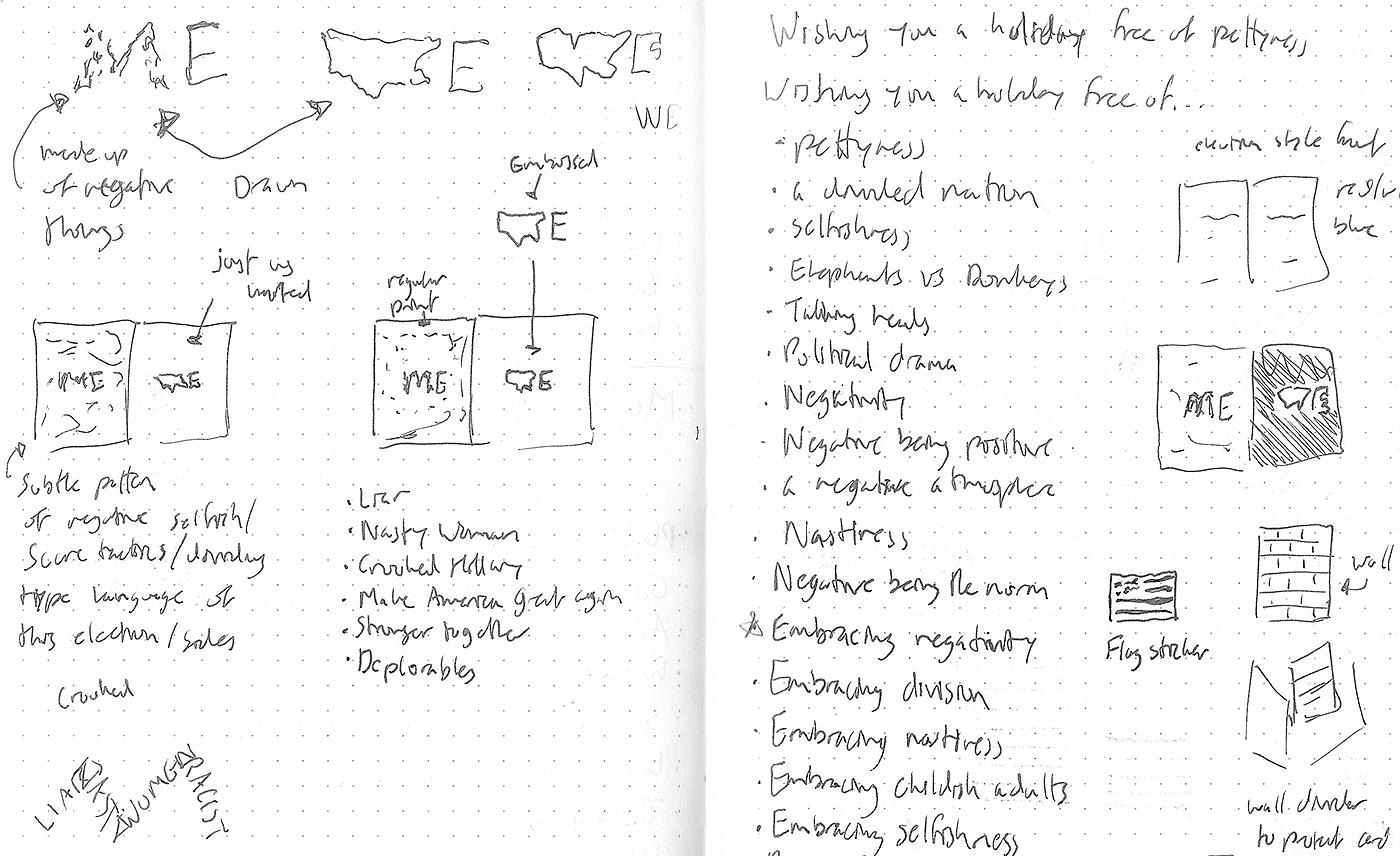 ME
E
E
WE
made up
of negative
things
Drawn
Embossed
E
just us
regular
print
ME
E
ME
E
Subtle pattern
of negative selfish/
Scare tactics/dividing
type language of
this election/sides
Crooked
LIAR
WOMEN
RACIST
· Liar
· Nasty Woman
· Crooked Hillary
· Make America Great again
· Stronger together
· Deplorables
Wishing you a holiday free of pettyness
Wishing you a holiday free of...
· pettyness
· a divided nation
· selfishness
· Elephants vs Donkeys
· Talking heads
· Political drama
· Negativity
· Negative being positive
· a negative atmosphere
· Nastiness
· Negative being the norm
· Embracing negativity
· Embracing division
· Embracing nastiness
· Embracing childish adults
· Embracing selfishness
election style font
blue
ME
E
wall
Flag sticker
wall divider
to protect card